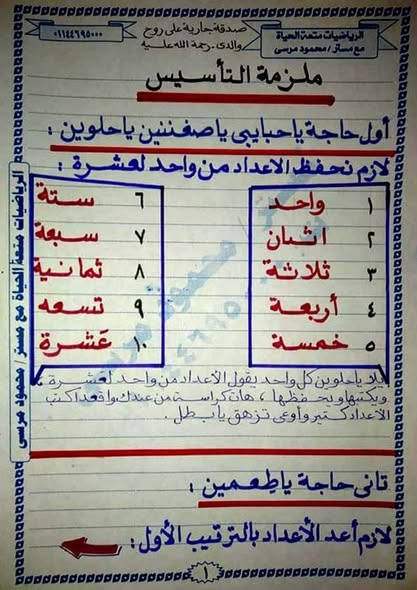 الرياضيات متعة الحياة
مع مستر/ محمود مرسى
صدقة جارية على روح
والدى - رحمة الله عليه
٠١١٤٤٦٩٥٠٠٠
ملزمة التأسيس
أول حاجة يا حبايبى يا صغننين يا حلوين :
لازم نحفظ الأعداد من واحد لعشرة :
١ واحد
٢ اثنان
٣ ثلاثة
٤ أربعة
٥ خمسة
٦ ستة
٧ سبعة
٨ ثمانية
٩ تسعه
١٠ عَشرة
يلا يا حلوين كل واحد يقول الأعداد من واحد لعشرة ،
ويكتبها ويحفظها ، هات كراسة من عندك واقعد اكتب
الأعداد كتير وأوعى تزهق يا بطل .
تانى حاجة يا طِعمين :
لازم أعد الأعداد بالترتيب الأول :
١
الرياضيات متعة الحياة مع مستر/ محمود مرسى